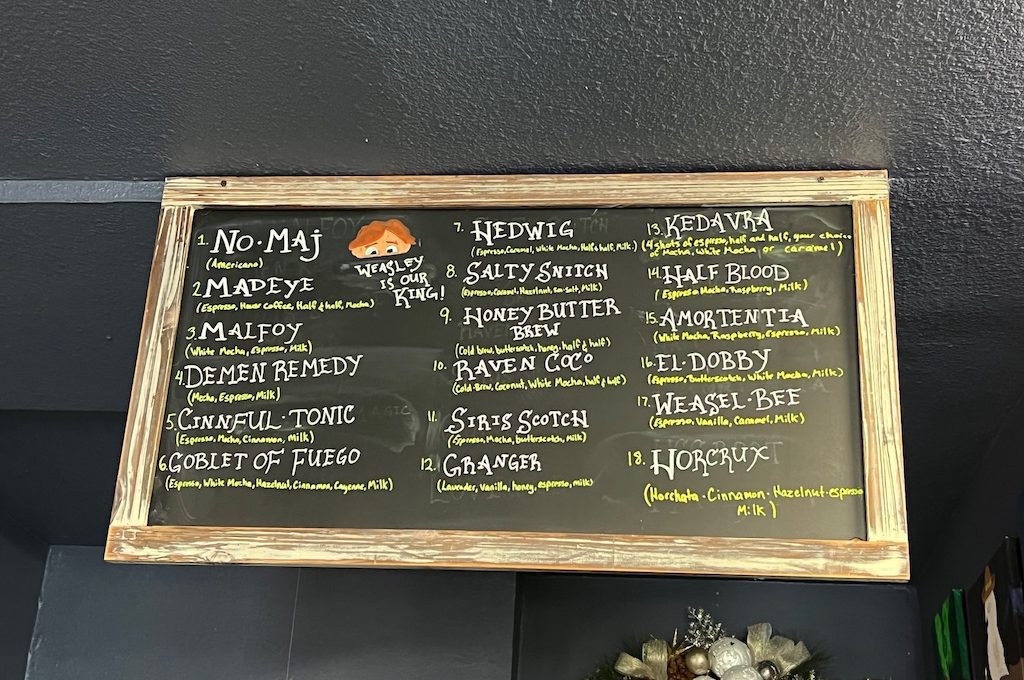 1. NO·MAJ
(Americano)
2. MADEYE
(Espresso, House Coffee, Half & half, Mocha)
3. MALFOY
(White Mocha, Espresso, Milk)
4. DEMEN REMEDY
(Mocha, Espresso, Milk)
5. CINNFUL·TONIC
(Espresso, Mocha, Cinnamon, Milk)
6. GOBLET OF FUEGO
(Espresso, White Mocha, Hazelnut, Cinnamon, Cayenne, Milk)
WEASLEY
IS OUR
KING!
7. HEDWIG
(Espresso, Caramel, White Mocha, Half & half, Milk.)
8. SALTY SNITCH
(Espresso, Caramel, Hazelnut, Sea-Salt, Milk)
9. HONEY BUTTER
BREW
(Cold brew, butterscotch, honey, half & half)
10. RAVEN COCO
(Cold-Brew, Coconut, White Mocha, half & half)
11. SIRIS SCOTCH
(Espresso, Mocha, butterscotch, Milk)
12. GRANGER
(Lavender, Vanilla, honey, espresso, milk)
13. KEDAVRA
(4 shots of espresso, half and half, your choice
of Mocha, White Mocha or caramel)
14. HALF BLOOD
(Espresso Mocha, Raspberry, Milk)
15. AMORTENTIA
(White Mocha, Raspberry, Espresso, Milk)
16. EL·DOBBY
(Espresso, Butterscotch, White Mocha, Milk)
17. WEASEL·BEE
(Espresso, Vanilla, Caramel, Milk)
18. HORCRUX
(Horchata · Cinnamon · Hazelnut · espresso
Milk)